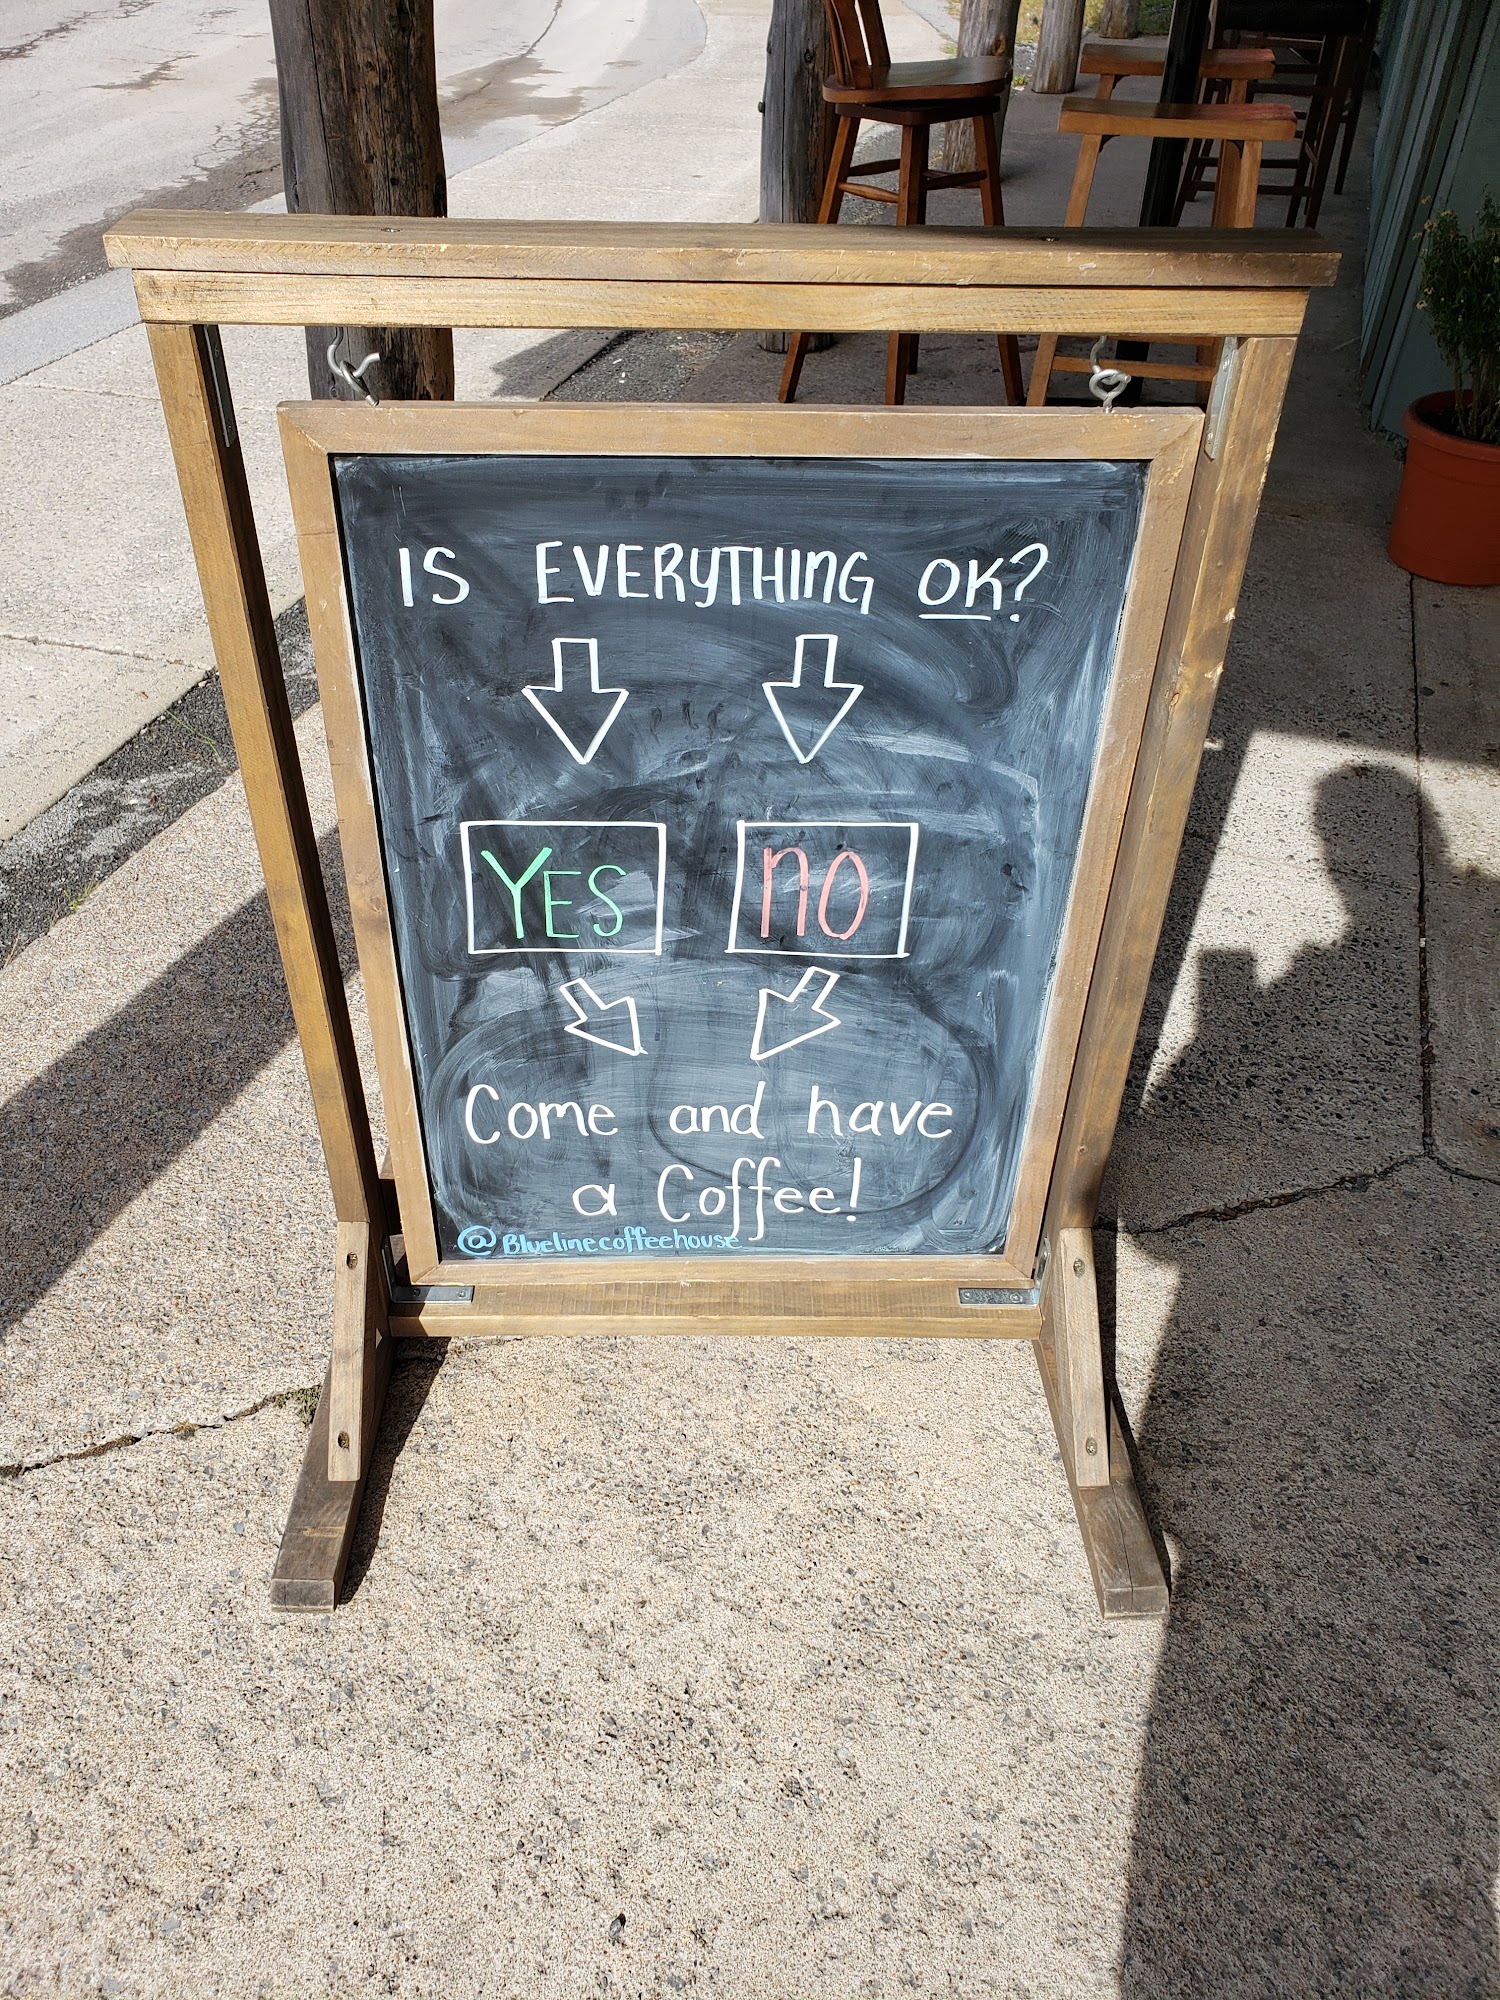 IS EVERYTHING OK?
YES NO
Come and have
a Coffee!
@Bluelinecoffeehouse